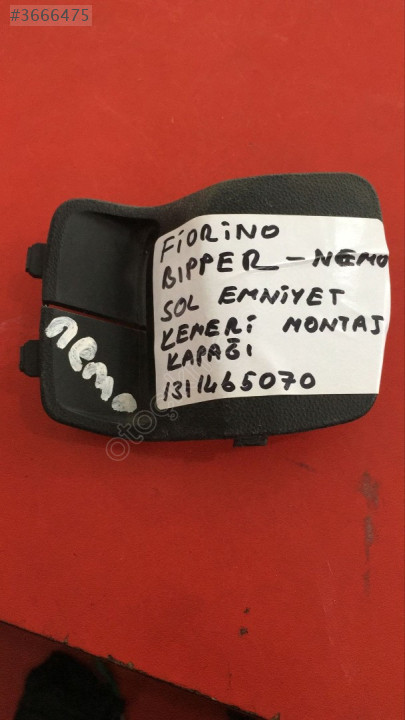 #3666475
FİORİNO
BIPPER - NEMO
SOL EMNİYET
KEMERİ MONTAJ
KAPAĞI
1311465070
nemo